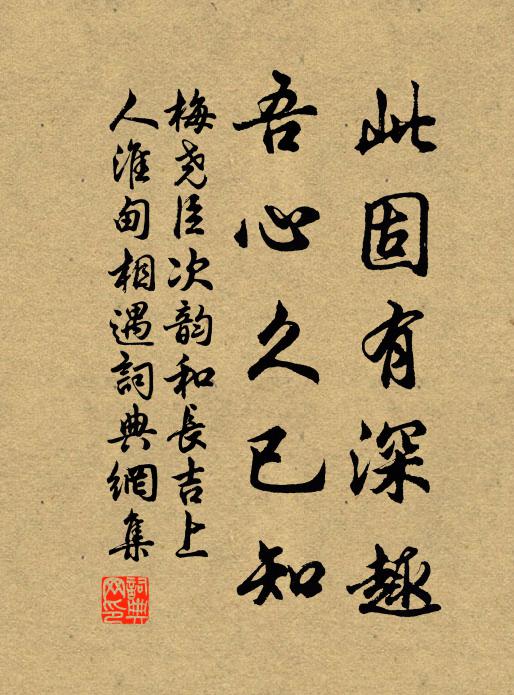 此固有深趣
吾心久已知
梅尧臣次韵和長吉上
人淮甸相遇詞典網集
詞典网印